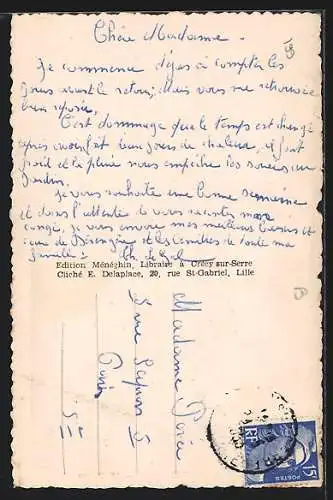 Chère Madame -
Je commence déjà à compter les
jours avant le retour, Mais vous me retrouverez
bien reposée.
C'est dommage que le temps est changé
après avoir fait beau jours de chaleur, il fait
froid et la pluie nous empêche les soucis au
Jardin.
Je vous souhaite une bonne semaine
et dans l'attente de vous raconter mon
congé, je vous envoie mes meilleurs baisers et
ceux de Bérengère et les amitiés de toute ma
famille.
Edition Ménéghin, Libraire à Crécy-sur-Serre
Cliché E. Delaplace, 20, rue St-Gabriel, Lille
Madame
5 rue
Paris
5e
15F
RF
POSTES